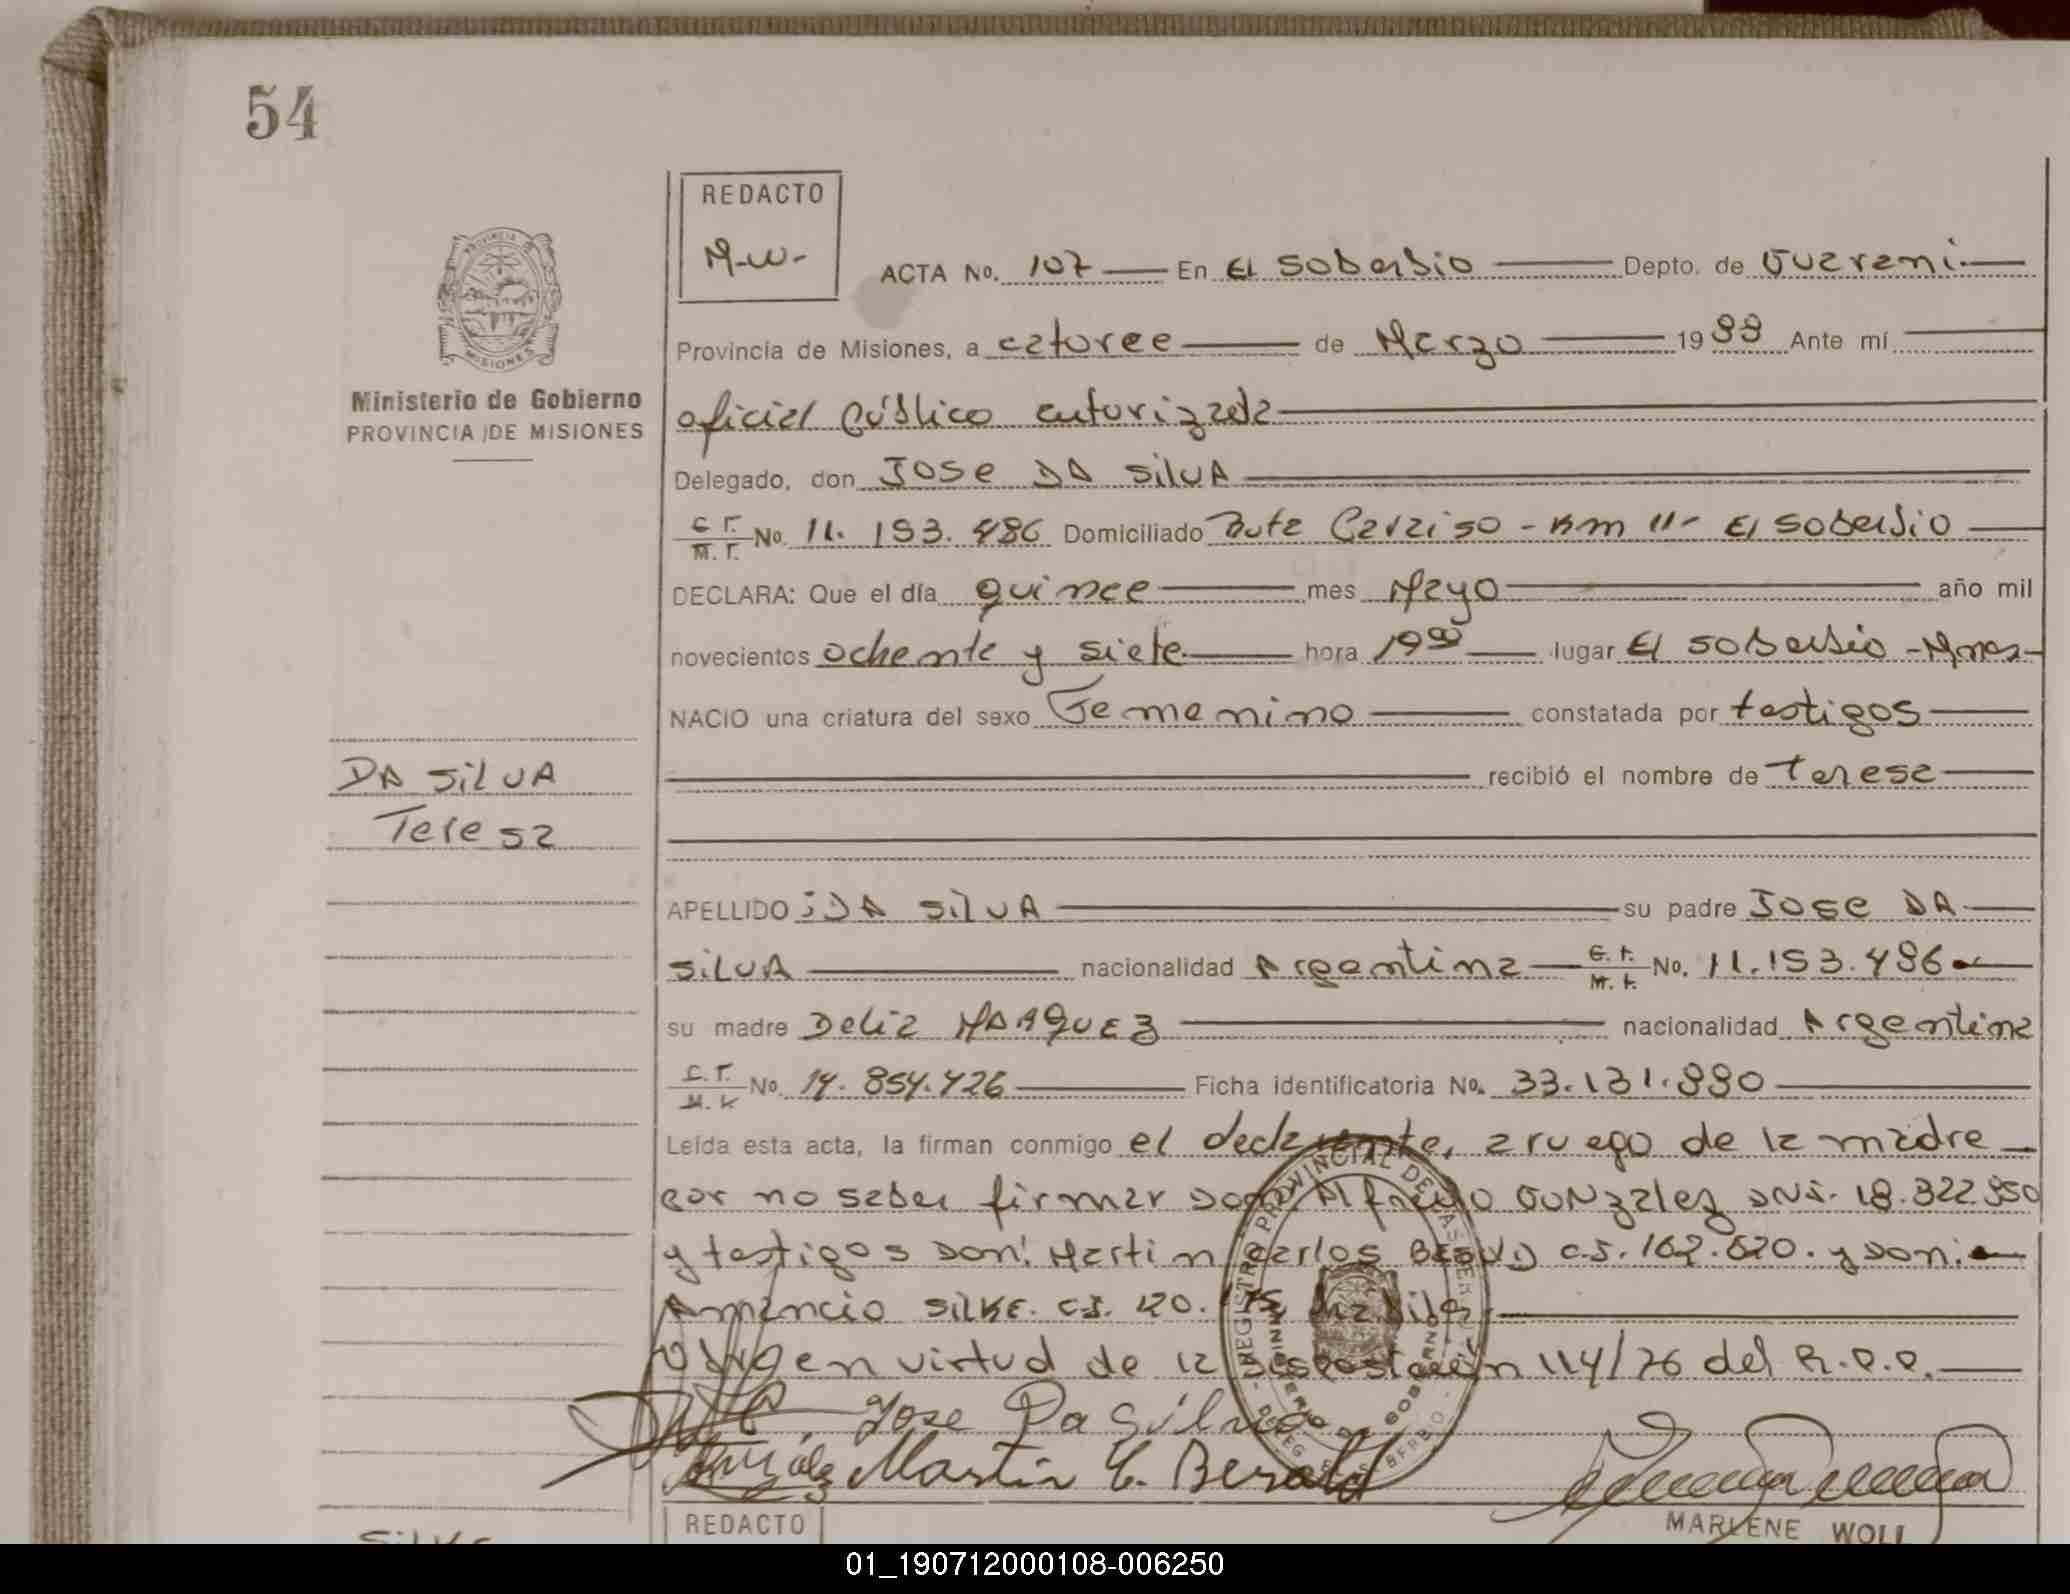 54
REDACTO
M-W-
PROVINCIA DE
MISIONES
Ministerio de Gobierno
PROVINCIA DE MISIONES
ACTA No. 107 En El Soberbio Depto. de Guarani.
Provincia de Misiones, a catorce de Marzo 1988 Ante mí
oficial Público autorizada
Delegado, don JOSE DA SilVA
C.I. M.I. No. 11.153.486 Domiciliado Ruta Paraiso - Km 11- El Soberbio
DECLARA: Que el día quince mes Mayo año mil
novecientos ochenta y siete hora 19 00 lugar El Soberbio - Mnes-
NACIO una criatura del sexo Femenino constatada por testigos
recibió el nombre de Teresa
DA SilVA
Teresa
APELLIDO: DA SilVA su padre JOSE DA
SilVA nacionalidad Argentina C.I. M.I. No. 11.153.486
su madre Delia MARQUEZ nacionalidad Argentina
C.I. M.I. No. 14.854.426 Ficha identificatoria No. 33.131.880
Leída esta acta, la firman conmigo el declarante, a ruego de la madre
por no saber firmar don Alfredo GONzalez DNI. 18.322.850
y testigos Don: Martin Carlos C.I. 162.620. y Don:
Amancio SilKE. C.I. 120. habiles
en virtud de la Disposición 114/76 del R.P.P.
REGISTRO PROVINCIAL DE LAS PER
MINISTERIO DE GOBIERNO
Jose Da Silva
Martin C. Berald
REDACTO
MARLENE WOLL
SilKE
01_190712000108-006250